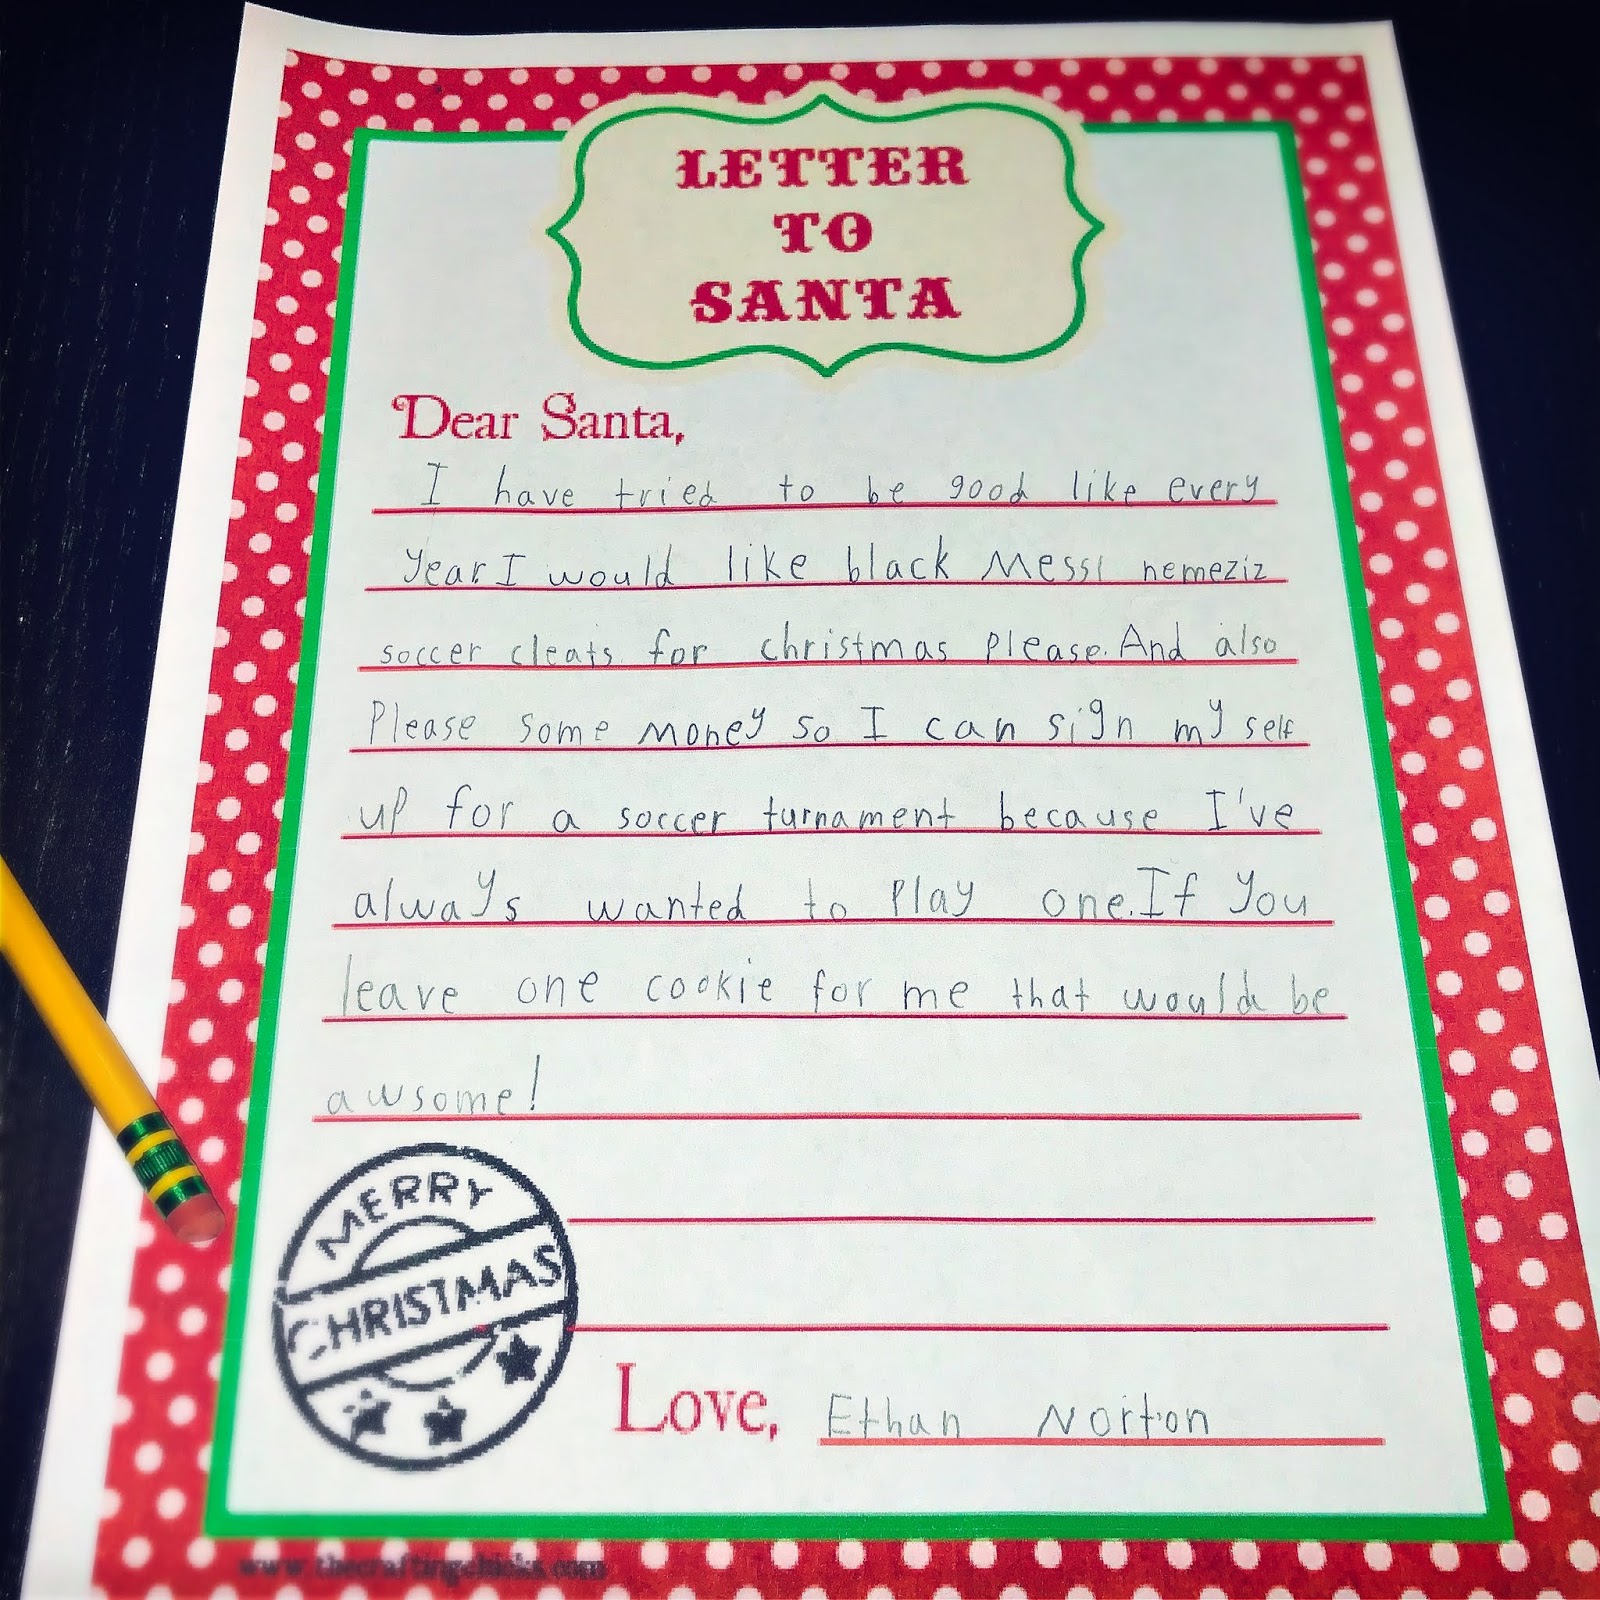 LETTER
TO
SANTA
Dear Santa,
I have tried to be good like every
year I would like black Messi nemeziz
soccer cleats for christmas please. And also
Please some money so I can sign my self
up for a soccer turnament because I've
always wanted to play one. If you
leave one cookie for me that would be
awsome!
MERRY
CHRISTMAS
Love, Ethan Norton
www.thecraftingchicks.com